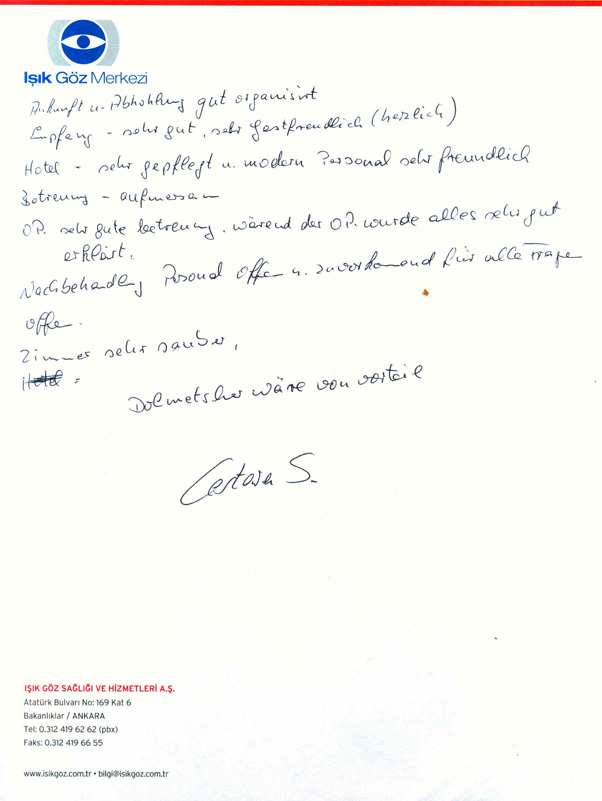 Işık Göz Merkezi
Ankunft u. Abhohlung gut organisirt
Empfang - sehr gut, sehr Gastfreundlich (herzlich)
Hotel - sehr gepflegt u. modern Personal sehr freundlich
Betreuung - aufmersam
OP. sehr gute betreuung, wärend der OP. wurde alles sehr gut
erklärt.
Nachbehandlg Personal offen u. zuvorkomend für alle Frage
offen.
Zimmer sehr sauber,
Hotel =
Dolmetsher wäre von vorteil
S.
IŞIK GÖZ SAĞLIĞI VE HİZMETLERİ A.Ş.
Atatürk Bulvarı No: 169 Kat 6
Bakanlıklar / ANKARA
Tel: 0.312 419 62 62 (pbx)
Faks: 0.312 419 66 55
www.isikgoz.com.tr • bilgi@isikgoz.com.tr